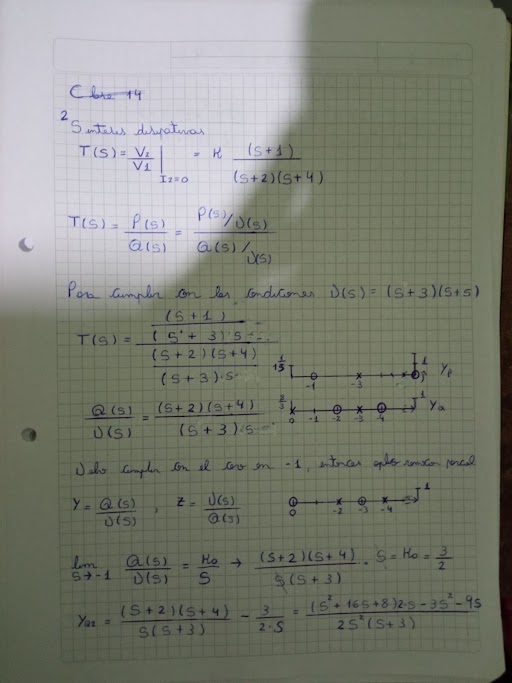 Clase 14
2 Sintesis disipativas
T(S) = V2/V1 | I2=0 = K (S+1) / (S+2)(S+4)
T(S) = P(S)/Q(S) = P(S)/D(S) / Q(S)/D(S)
Para cumplir con las condiciones D(S) = (S+3)(S+5)
T(S) = (S+1) / (S+3)·S / (S+2)(S+4) / (S+3)·S
1/15 -1 -3 1 Yp
Q(S)/D(S) = (S+2)(S+4) / (S+3)·S
0 -1 -2 -3 -4 1 Ya
Debo cumplir con el cero en -1, entonces remocion parcial
Y = Q(S)/D(S) , Z = D(S)/Q(S)
0 -2 -3 -4 1
lim S→-1 Q(S)/D(S) = K0/S → (S+2)(S+4) / S(S+3) · S = K0 = 3/2
Ya2 = (S+2)(S+4) / S(S+3) - 3/2·S = (S²+16S+8)2·S-3S²-9S / 2S²(S+3)